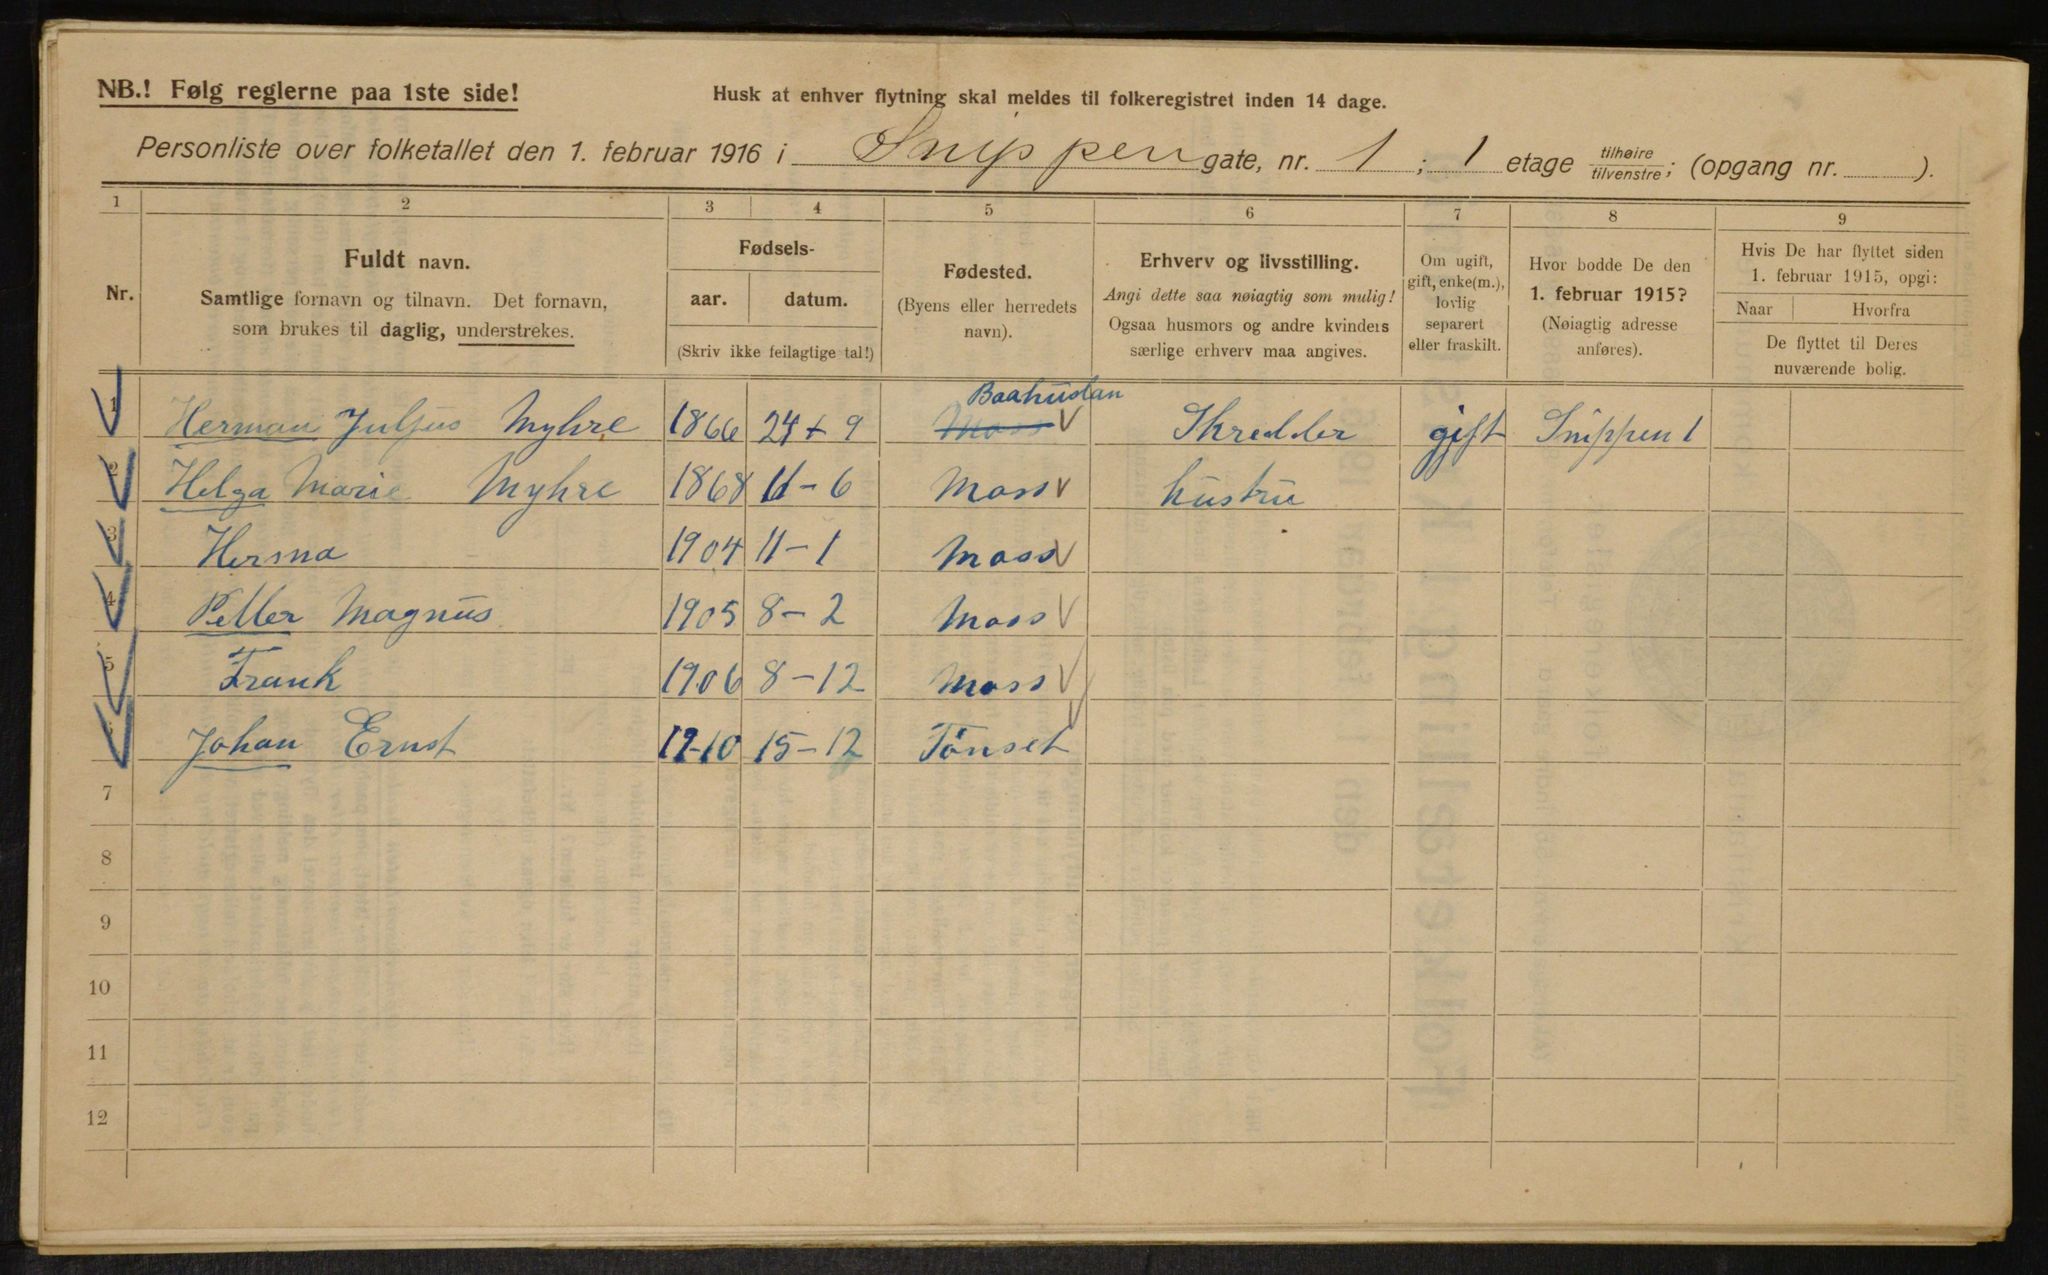 NB.! Følg reglerne paa 1ste side!
Husk at enhver flytning skal meldes til folkeregistret inden 14 dage.
Personliste over folketallet den 1. februar 1916 i Snippen gate, nr. 1 ; 1 etage tilhøire/tilvenstre; (opgang nr. ).
1 2 3 4 5 6 7 8 9
Nr.
Fuldt navn.
Samtlige fornavn og tilnavn. Det fornavn,
som brukes til daglig, understrekes.
Fødsels-
aar. datum.
(Skriv ikke feilagtige tal!)
Fødested.
(Byens eller herredets
navn).
Erhverv og livsstilling.
Angi dette saa nøiagtig som mulig!
Ogsaa husmors og andre kvinders
særlige erhverv maa angives.
Om ugift,
gift, enke(m.),
lovlig
separert
eller fraskilt.
Hvor bodde De den
1. februar 1915?
(Nøiagtig adresse
anføres).
Hvis De har flyttet siden
1. februar 1915, opgi:
Naar Hvorfra
De flyttet til Deres
nuværende bolig.
Baahuslan
1 Herman Juljus Myhre 1866 24 + 9 Moss Skredder gift Snippen 1
2 Helga Marie Myhre 1868 11 - 6 Moss hustru
3 Hersna 1904 11 - 1 Moss
4 Petter Magnus 1905 8 - 2 Moss
5 Frank 1906 8 - 12 Moss
Johan Ernst 1910 15 - 12 Tønset
7
8
9
10
11
12